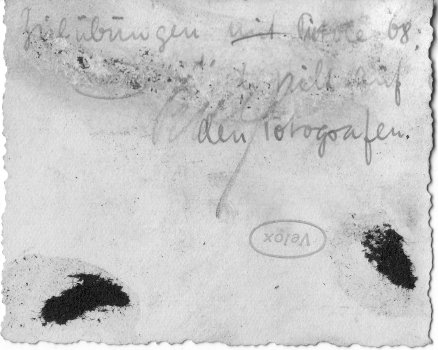 Zielübungen mit Pistole 08.
zielt auf
den Fotografen.
Velox